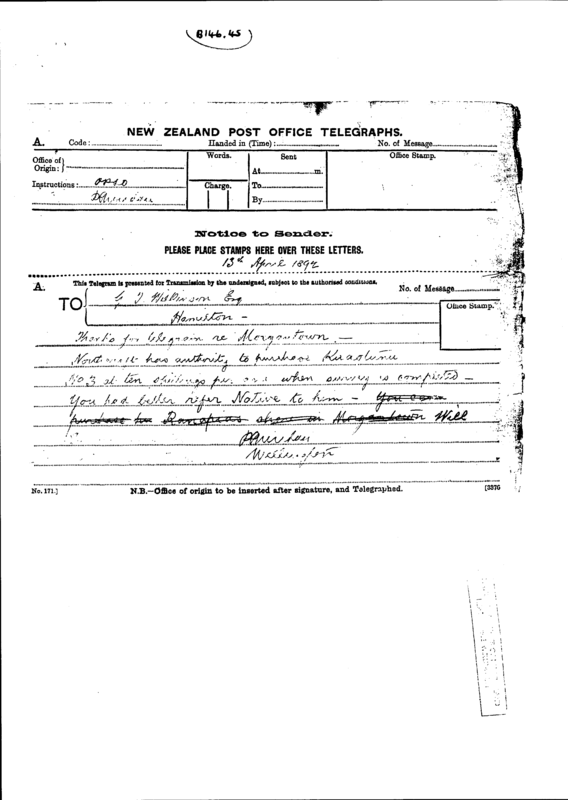 B146.45
NEW ZEALAND POST OFFICE TELEGRAPHS.
A. Code: Handed in (Time): No. of Message
Office of Origin: Words. Sent Office Stamp.
At m.
Instructions: OPSO Charge. To
By
Notice to Sender.
PLEASE PLACE STAMPS HERE OVER THESE LETTERS.
13th April 1892
A. This Telegram is presented for Transmission by the undersigned, subject to the authorised conditions. No. of Message
TO G T Wilkinson Esq Office Stamp.
Hamilton -
Thanks for telegram re Morgantown -
has authority to purchase Kuaotunu
No 3 at ten shillings per acre when survey is completed -
You had better refer Native to him - You can
purchase for Ranapias share in Morgantown Will
P Sheridan
Wellington
No. 171.] N.B.—Office of origin to be inserted after signature, and Telegraphed. [3376